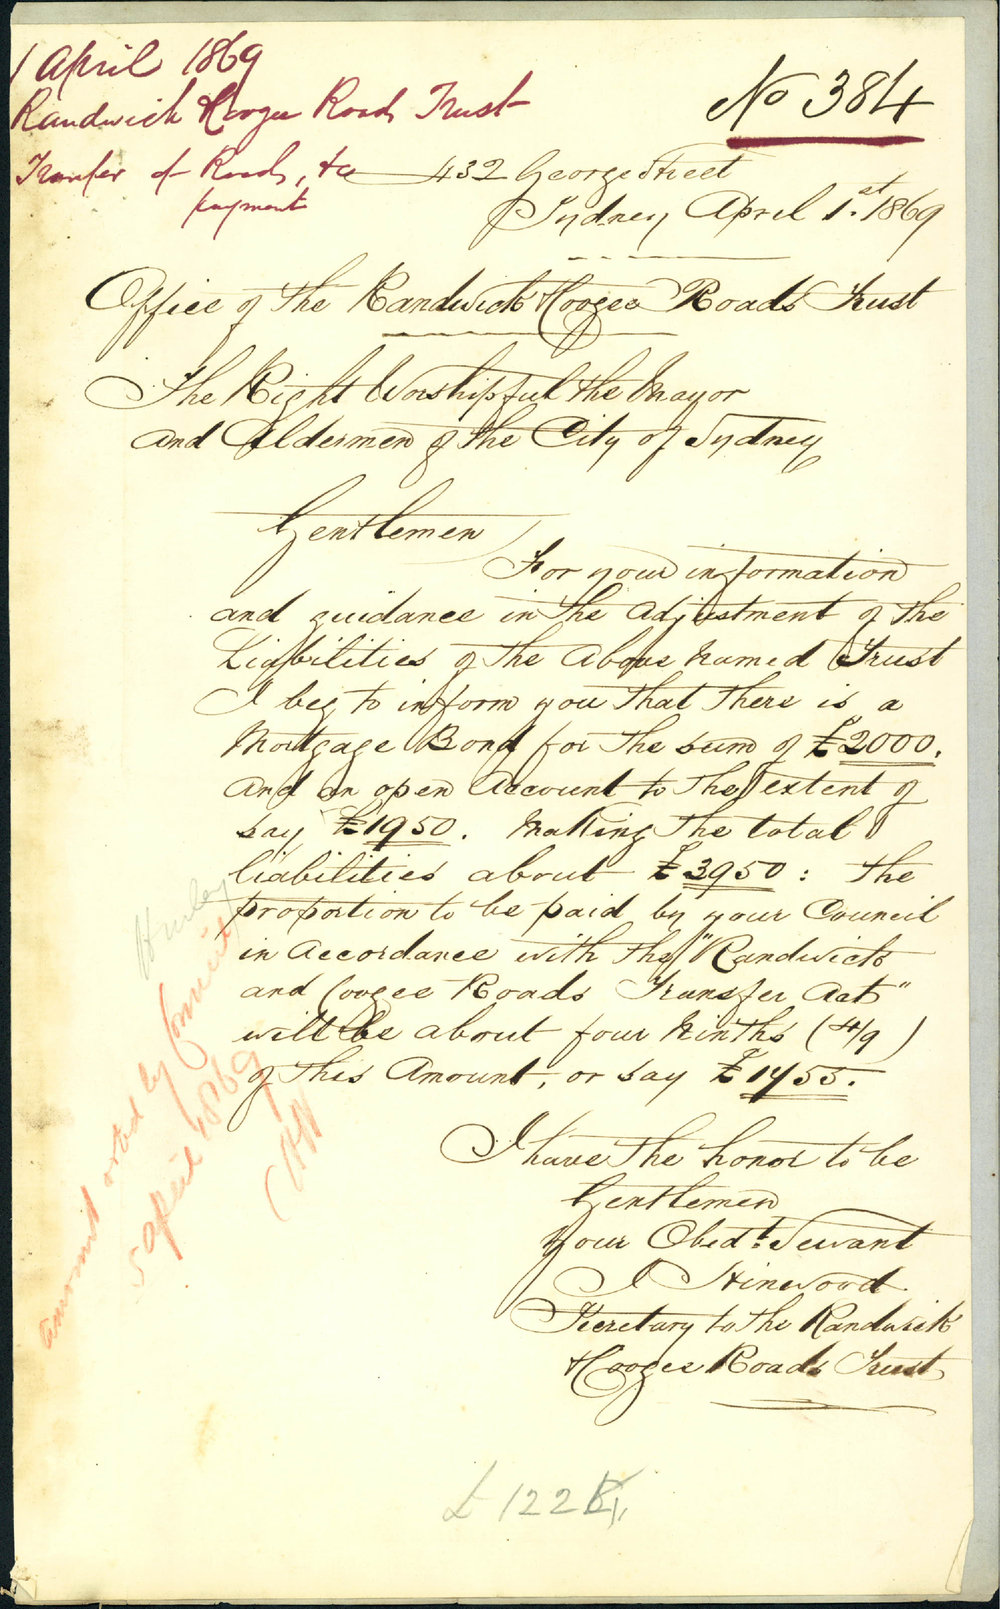 1 April 1869
Randwick & Coogee Road Trust
Transfer of Roads, &c
payment
No 384
432 George Street
Sydney April 1st. 1869
Office of the Randwick & Coogee Roads Trust
The Right Worshipful the Mayor
and Aldermen of the City of Sydney
Gentlemen
For your information
and guidance in the adjustment of the
Liabilities of the above named Trust
I beg to inform you that there is a
Mortgage Bond for the sum of £2000.
and an open Account to the extent of
say £1950. Making the total
liabilities about £3950: the
proportion to be paid by your Council
in accordance with the "Randwick
and Coogee Roads Transfer Act"
will be about four Ninths (4/9)
of this Amount, or say £1755.
I have the honor to be
Gentlemen
your Obedt. Servant
J Hinwood
Secretary to the Randwick
& Coogee Roads Trust
amount voted by Council
5 April 1869
£122